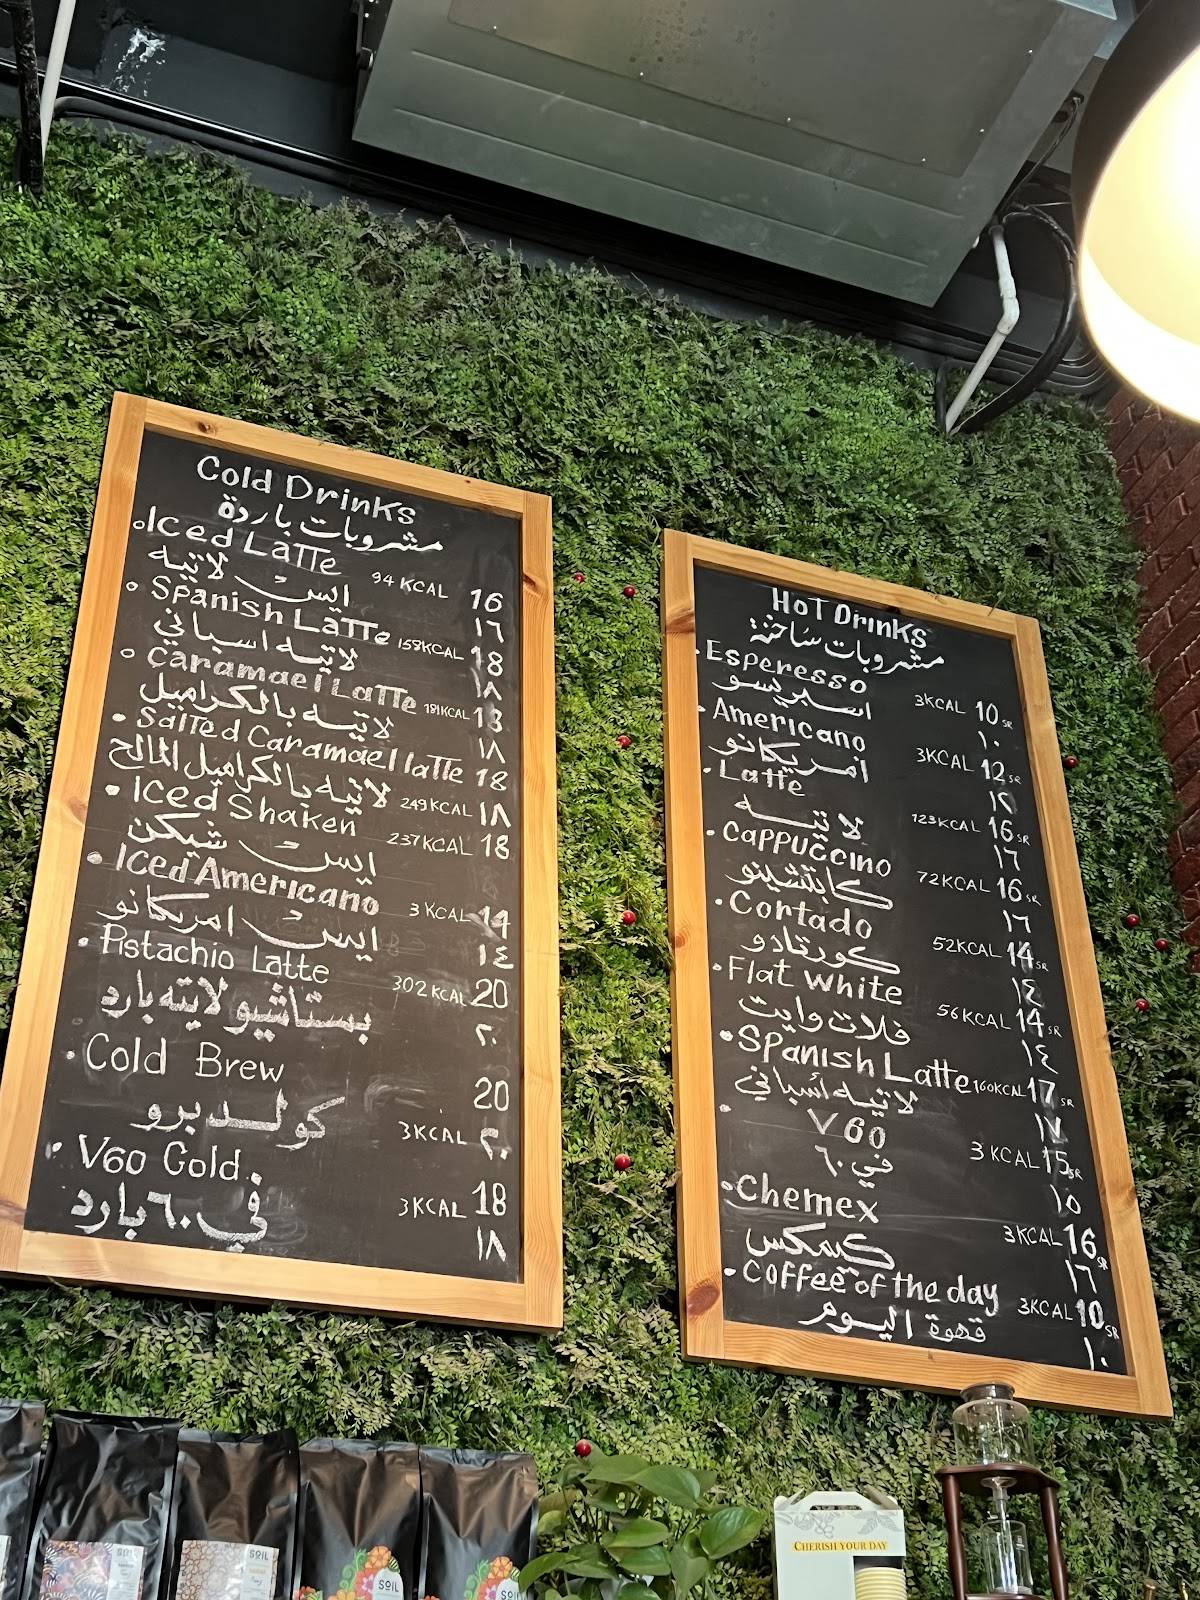 Cold Drinks
مشروبات باردة
Iced Latte 94 KCAL 16
ايس لاتيه ١٦
Spanish Latte 159KCAL 18
لاتيه اسباني ١٨
Caramael Latte 191KCAL 18
لاتيه بالكراميل ١٨
Salted Caramael latte 18
لاتيه بالكراميل المالح 249KCAL ١٨
Iced Shaken 237KCAL 18
ايس شيكن
Iced Americano 3 KCAL 14
ايس امريكانو ١٤
Pistachio Latte 302 KCAL 20
بستاشيو لاتيه بارد ٢٠
Cold Brew 20
كولد برو 3KCAL ٢٠
V60 Cold 3KCAL 18
في ٦٠ بارد ١٨
Hot Drinks
مشروبات ساخنة
Esperesso 3KCAL 10 SR
اسبريسو ١٠
Americano 3KCAL 12 SR
امريكانو ١٢
Latte 123KCAL 16 SR
لاتيه ١٦
Cappuccino 72KCAL 16 SR
كابتشينو ١٦
Cortado 52KCAL 14 SR
كورتادو ١٤
Flat white 56KCAL 14 SR
فلات وايت ١٤
Spanish Latte 160KCAL 17 SR
لاتيه أسباني ١٧
V60 3 KCAL 15 SR
في ٦٠ ١٥
Chemex 3KCAL 16 SR
كيمكس ١٦
Coffee of the day 3KCAL 10 SR
قهوة اليوم ١٠
CHERISH YOUR DAY
SOIL
SOIL
SOIL
SOIL